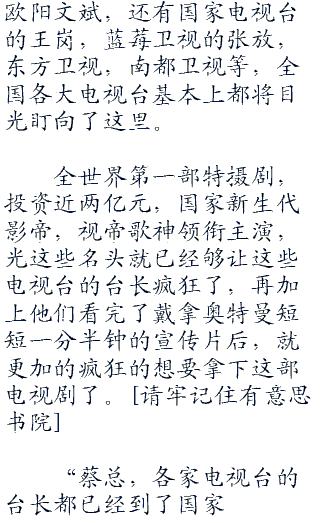 欧阳文斌，还有国家电视台
的王岗，蓝莓卫视的张放，
东方卫视，南都卫视等，全
国各大电视台基本上都将目
光盯向了这里。
全世界第一部特摄剧，
投资近两亿元，国家新生代
影帝，视帝歌神领衔主演，
光这些名头就已经够让这些
电视台的台长疯狂了，再加
上他们看完了戴拿奥特曼短
短一分半钟的宣传片后，就
更加的疯狂的想要拿下这部
电视剧了。[请牢记住有意思
书院]
“蔡总，各家电视台的
台长都已经到了国家